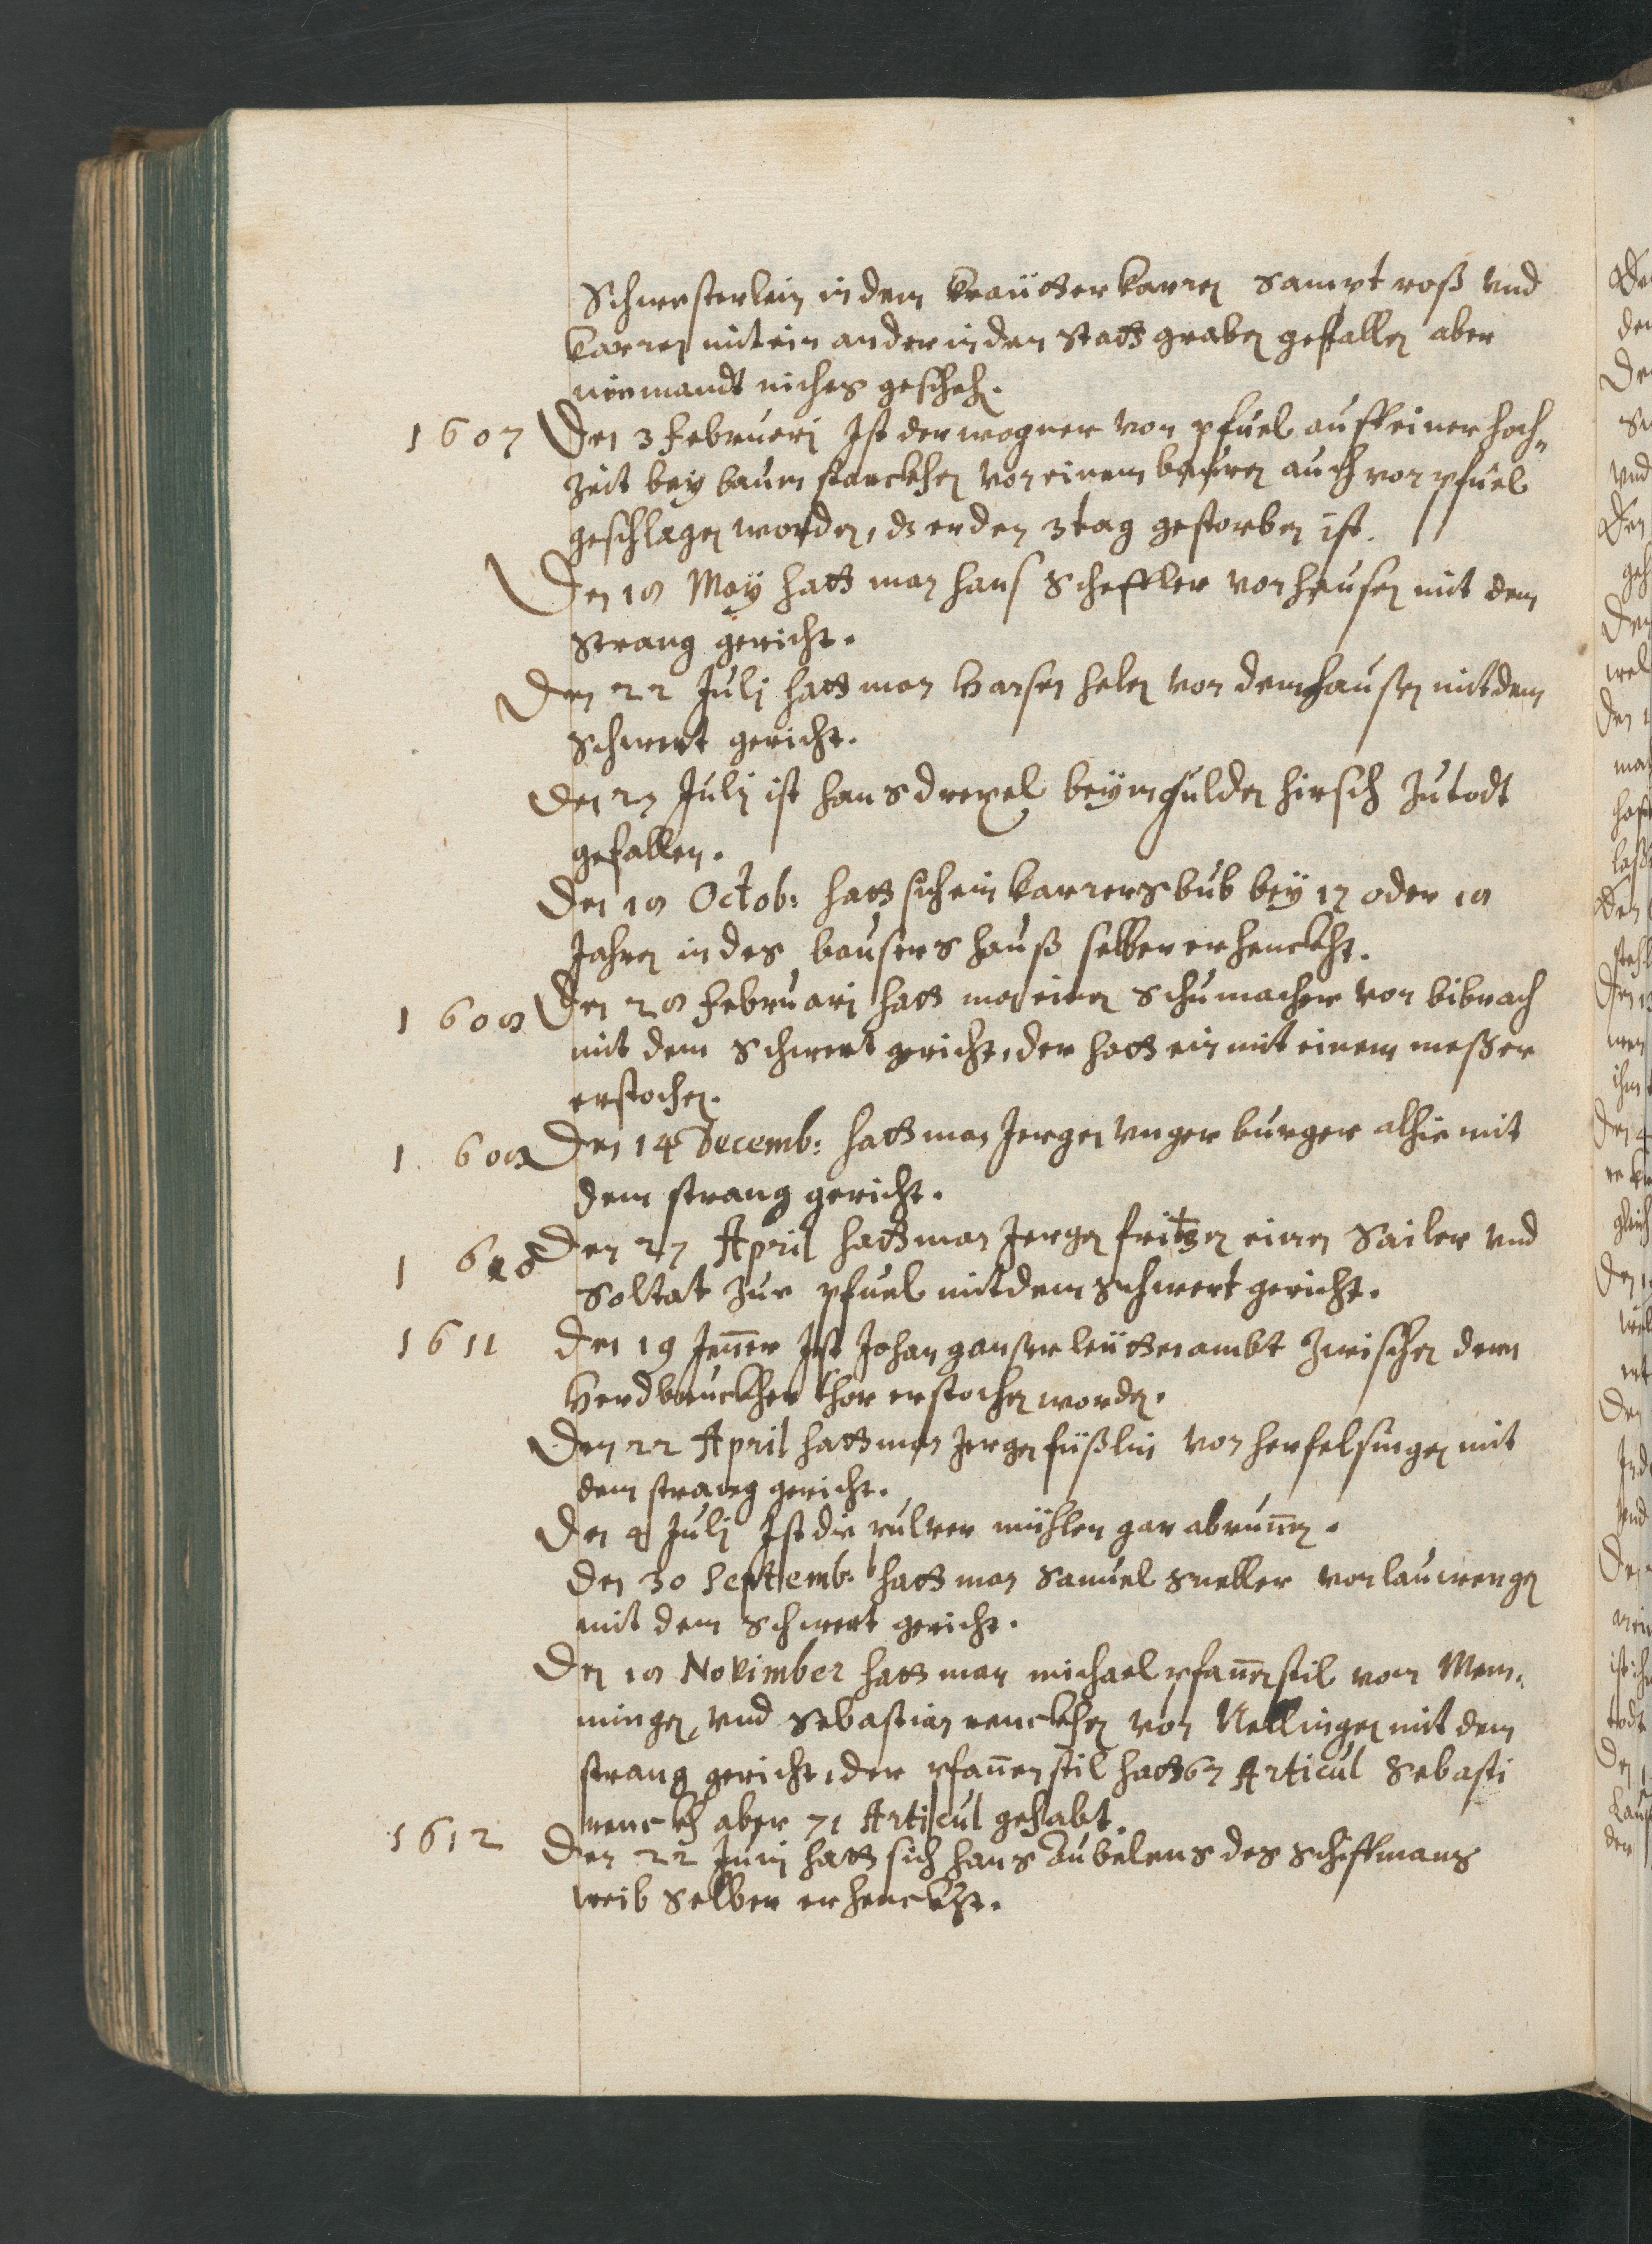 Schwesterlein in dem kreütter karren sampt roß vnd
karren mit ein ander in den statt graben gefallen aber
niemandt nichts gescheh.
1607 Den 3 Februeri Ist der wagner von pfuel auff einer hoch¬
zeit bey baum starckhen von einem bauren auch von pfuel
geschlagen worden, dz er den 3 tag gestorben ist.
Den 18 May hatt man hans Scheffler von hausen mit dem
strang gericht.
Den 22 Julj hatt man von dem hausen mit dem
Schwert gericht.
Den 27 Julj ist hans drexel beym gulden hirsch zu todt
gefallen.
Den 18 Octob: hatt sich ein karrers bub bey 17 oder 18
Jahren in des bausers hauß selber erhenckht.
1608 Den 28 Februarj hatt man einen Schumacher von bibrach
mit dem Schwert gericht, der hatt ein mit einem messer
erstochen.
1608 Den 14 Decemb: hatt man Jergen vnger burger alhie mit
dem strang gericht.
1610 Den 27 April hatt man Jergen fritzen einen Sailer vnd
Soltat zur pfuel mit dem schwert gericht.
1611 Den 19 Jenner Ist Johan ganser leüttenambt zwischen dem
Herdbruckher thor erstochen worden.
Den 22 April hatt man Jergen füßlin von herfelsingen mit
dem strang gericht.
Den 4 Julj Ist die pulver mühlen gar abrunen.
Den 30 Septemb: hatt man Samuel sneller von lauwengen
mit dem Schwert gericht.
Den 18 November hatt man michael pfannenstil von Mem¬
mingen, vnd Sebastian renckhen von Nellingen mit dem
strang gericht, der pfannenstil hatt 67 Articul Sebasti
renckh aber 71 Articul gehabt.
1612 Den 22 Junj hatt sich hans des schiffmans
weib selber erhenckht.